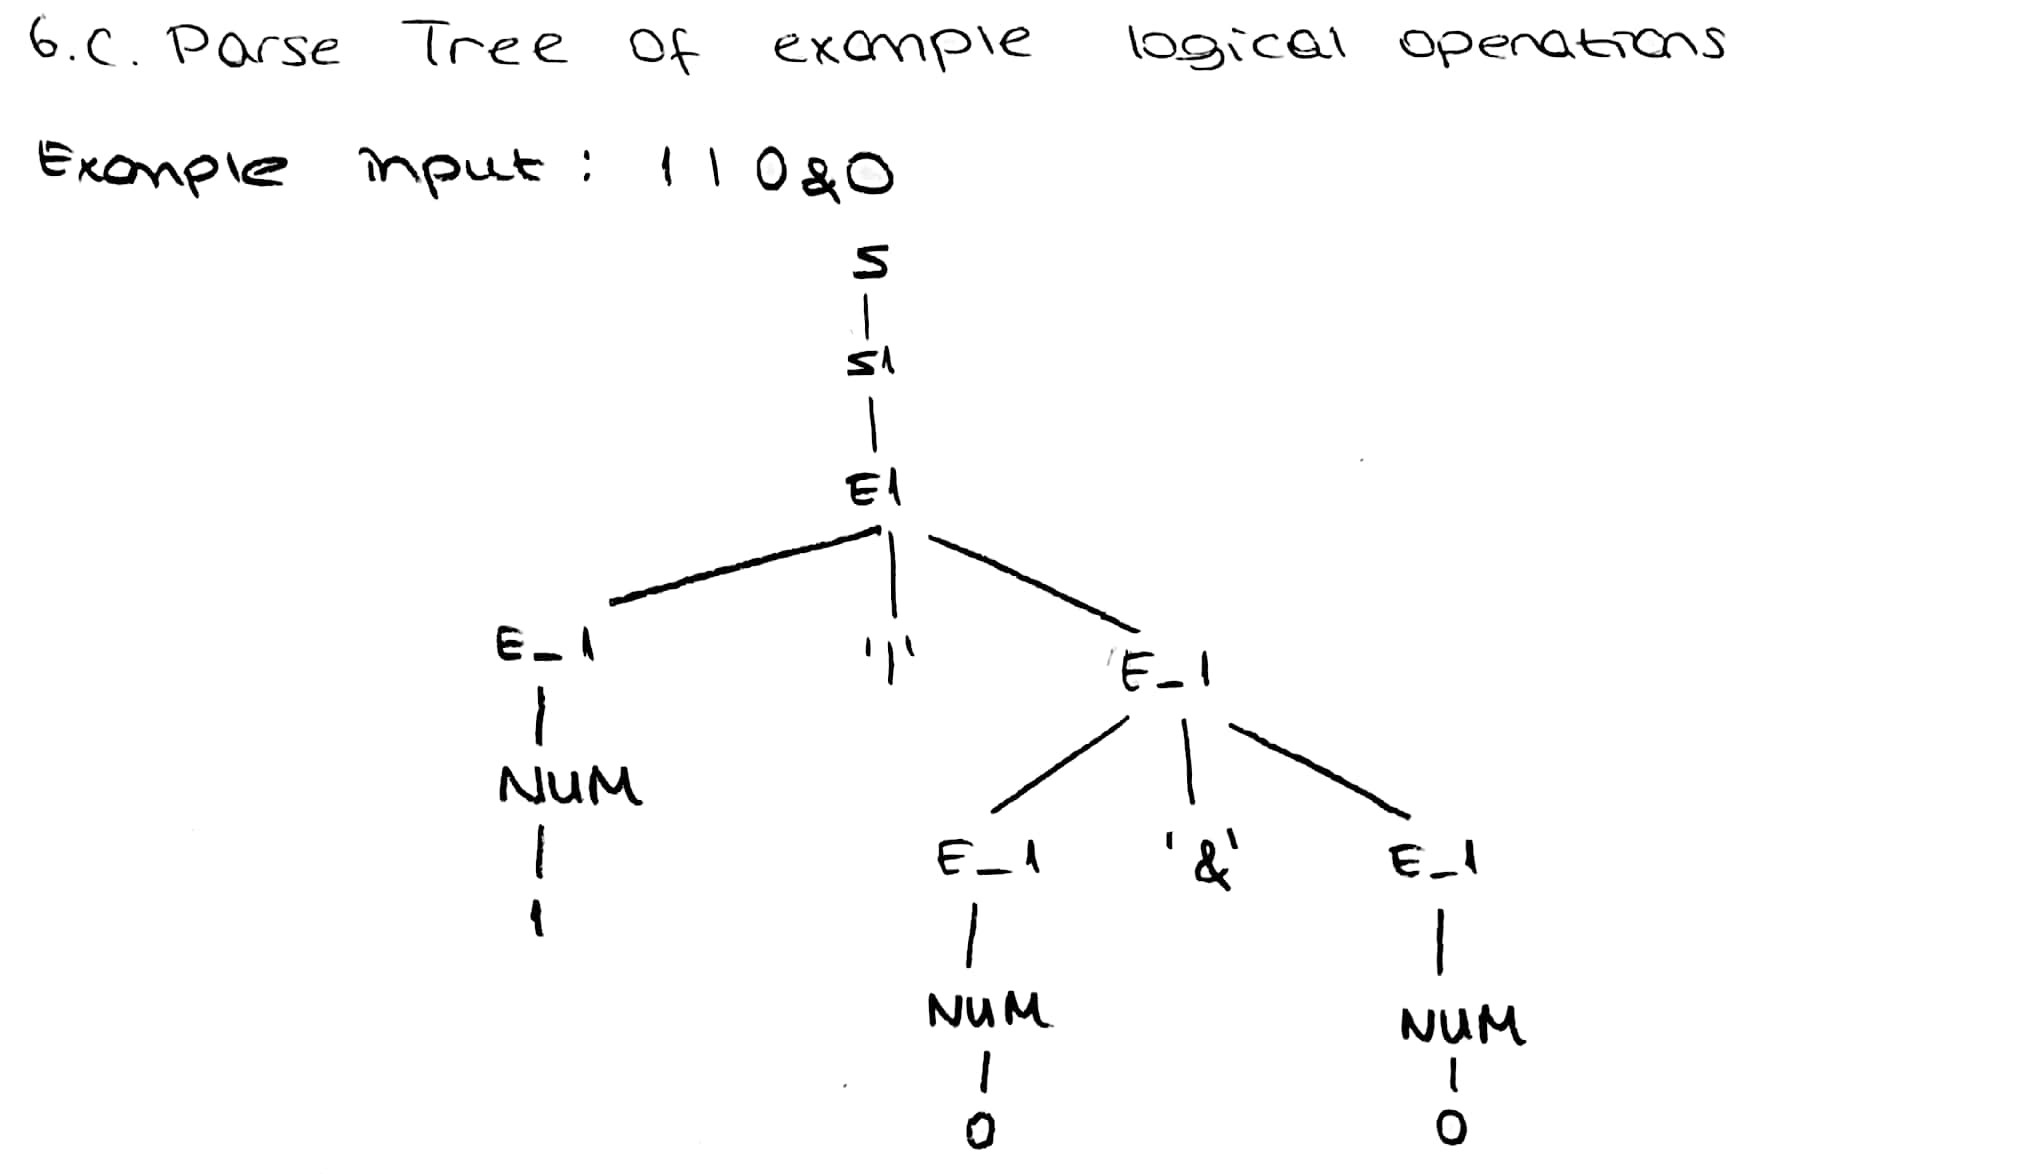 6.C. Parse Tree of example logical operations
Example input : 1|0&0
S
S1
E1
E_1 '|' E_1
NUM
E_1 '&' E_1
1
NUM NUM
0 0